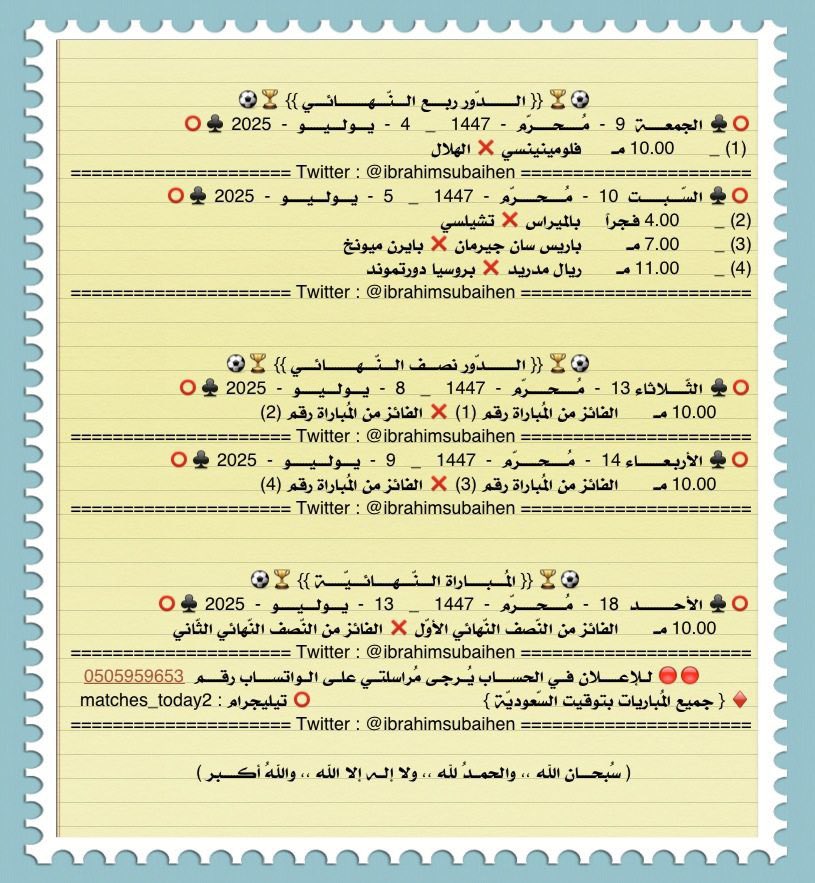 ⚽🏆 {{ الـــدّور ربـــع الـنّـــهـــــائـــي }} 🏆⚽
⭕♣ الجمعـــة 9 - مُــحــــرّم - 1447 _ 4 - يــولـيــــو - 2025 ♣⭕
(1) _ 10.00 مـ فلومينينسي ❌ الهلال
===================== Twitter : @ibrahimsubaihen =====================
⭕♣ السّـبــــت 10 - مُــحــــرّم - 1447 _ 5 - يــولـيــــو - 2025 ♣⭕
(2) _ 4.00 فـجـراً بالميراس ❌ تشيلسي
(3) _ 7.00 مـ باريس سان جيرمان ❌ بايرن ميونخ
(4) _ 11.00 مـ ريال مدريد ❌ بروسيا دورتموند
===================== Twitter : @ibrahimsubaihen =====================
⚽🏆 {{ الـــدّور نصــف الـنّـــهـــــائـــي }} 🏆⚽
⭕♣ الثّــلاثاء 13 - مُــحــــرّم - 1447 _ 8 - يــولـيــــو - 2025 ♣⭕
10.00 مـ الفائز من المُباراة رقم (1) ❌ الفائز من المُباراة رقم (2)
===================== Twitter : @ibrahimsubaihen =====================
⭕♣ الأربـعــــاء 14 - مُــحــــرّم - 1447 _ 9 - يــولـيــــو - 2025 ♣⭕
10.00 مـ الفائز من المُباراة رقم (3) ❌ الفائز من المُباراة رقم (4)
===================== Twitter : @ibrahimsubaihen =====================
⚽🏆 {{ المُـــبـــاراة الـنّـــهـــائـيّـــــة }} 🏆⚽
⭕♣ الأحـــــد 18 - مُــحــــرّم - 1447 _ 13 - يــولـيــــو - 2025 ♣⭕
10.00 مـ الفائز من النّصف النّهائي الأوّل ❌ الفائز من النّصف النّهائي الثّاني
===================== Twitter : @ibrahimsubaihen =====================
🔴🔴 للإعــلان فـي الحسـاب يُـرجـى مُراسلتـي علـى الـواتسـاب رقــم 0505959653
♦ { جميع المُباريات بتوقيت السّعوديّة } ⭕ تيليجرام : matches_today2
===================== Twitter : @ibrahimsubaihen =====================
( سُبحــان الله ،، والحمـدُ لله ،، ولا إلـه إلا الله ،، واللهُ أكــبــر )